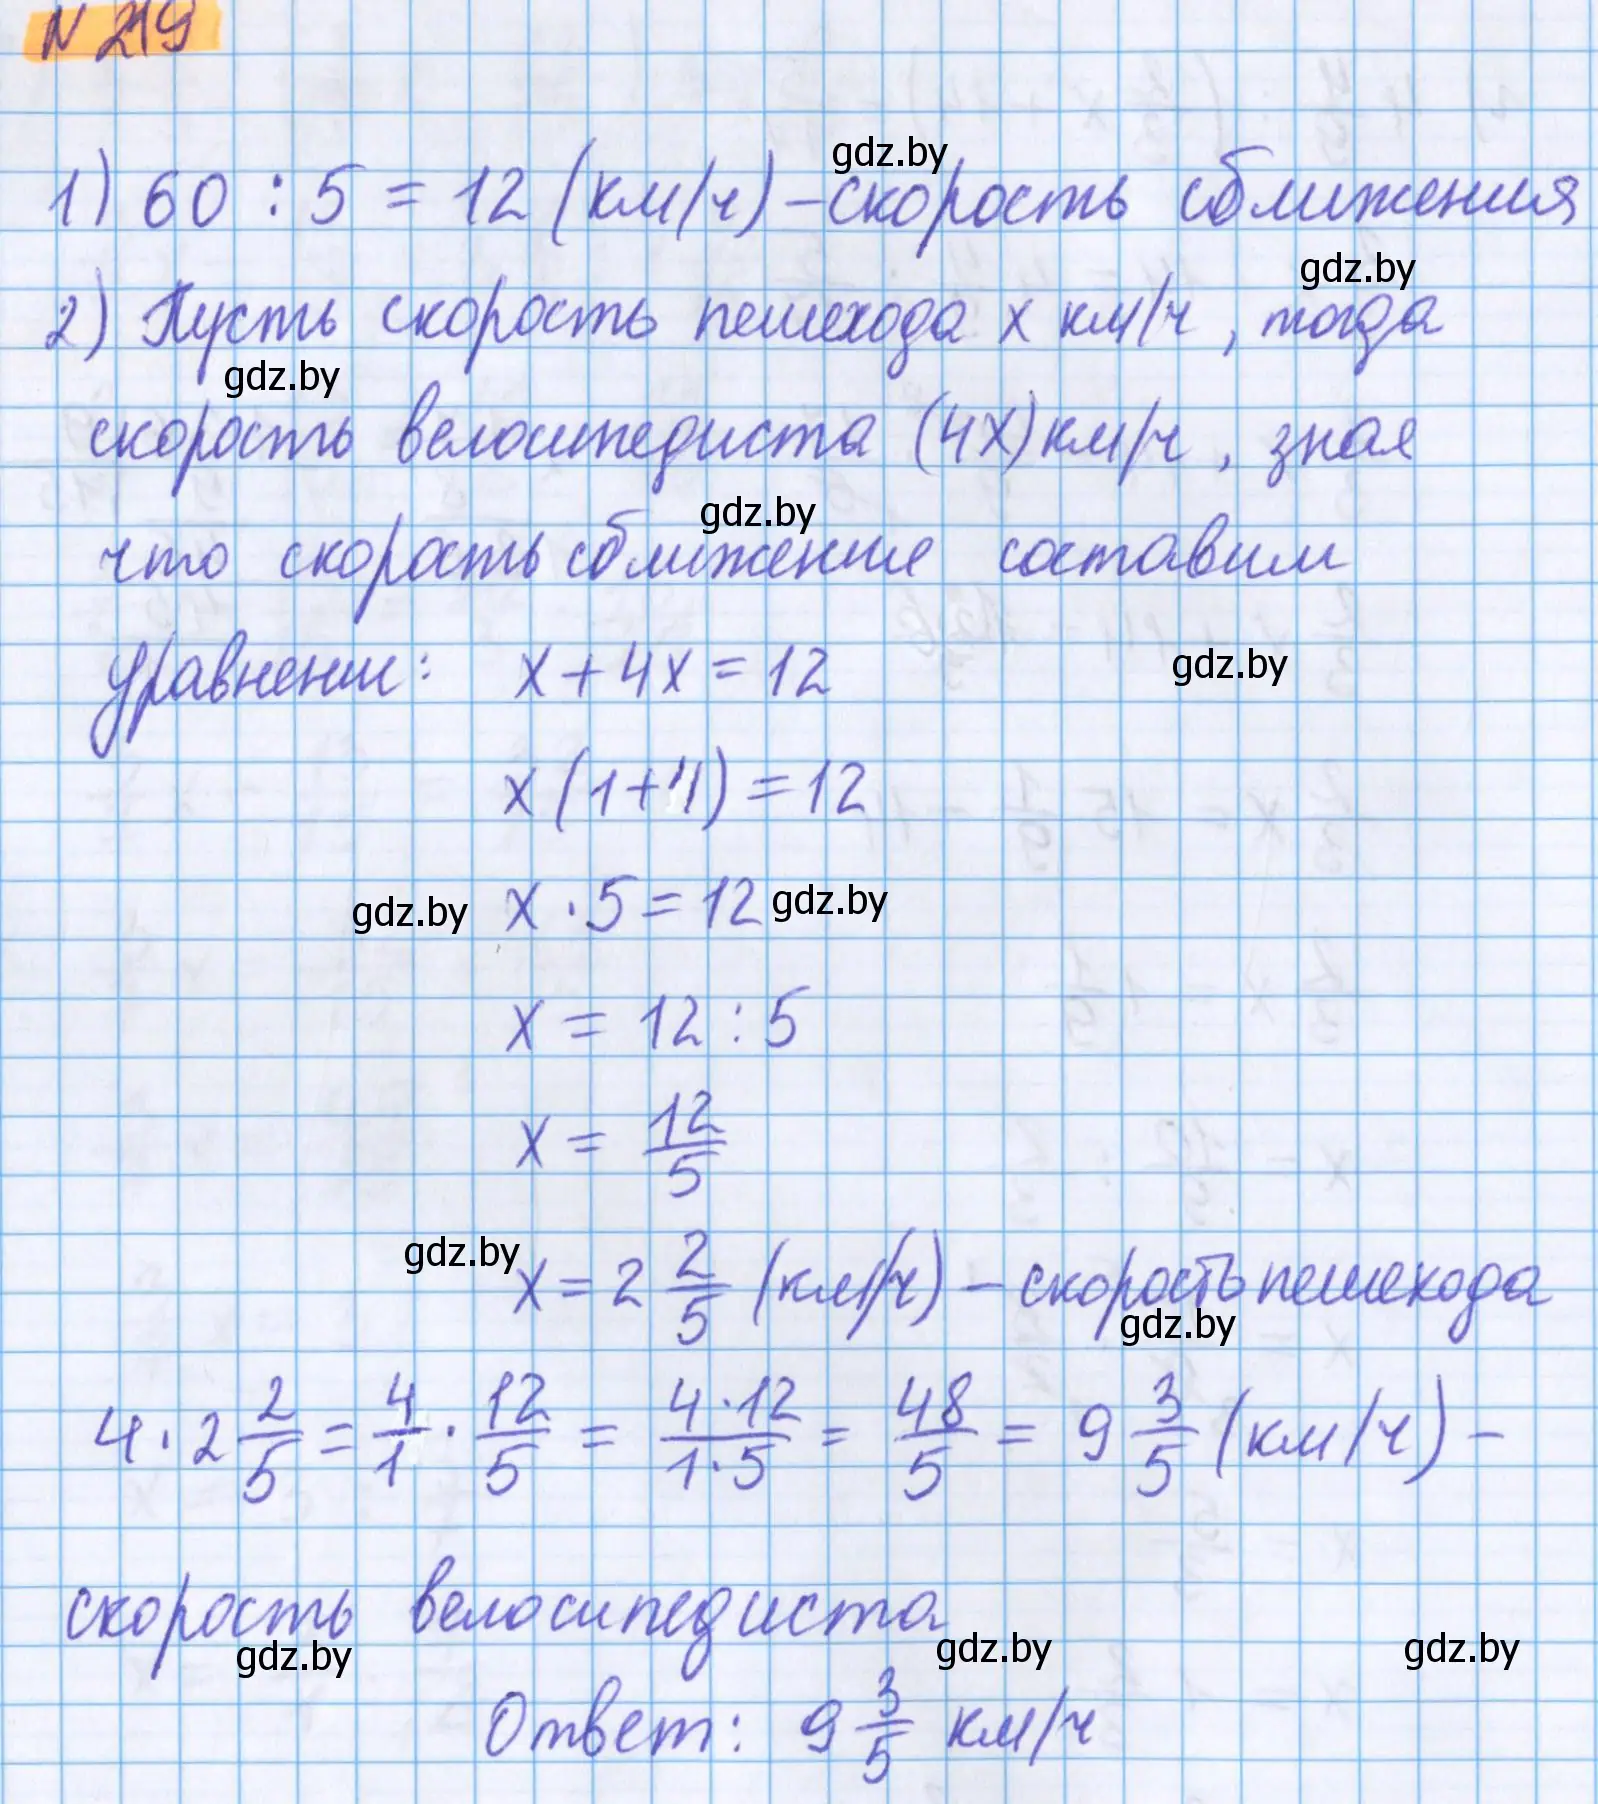 N 219
gdz.by
1) 60 : 5 = 12 (км/ч) – скорость сближения
gdz.by
2) Пусть скорость пешехода x км/ч, тогда
gdz.by
скорость велосипедиста (4x) км/ч, зная
gdz.by
что скорость сближение составим
уравнение: x + 4x = 12
gdz.by
x (1+4) = 12
gdz.by x · 5 = 12 gdz.by
x = 12 : 5
x = 12/5
gdz.by
x = 2 2/5 (км/ч) – скорость пешехода
gdz.by
4 · 2 2/5 = 4/1 · 12/5 = 4·12/1·5 = 48/5 = 9 3/5 (км/ч) –
скорость велосипедиста
gdz.by gdz.by gdz.by
Ответ: 9 3/5 км/ч